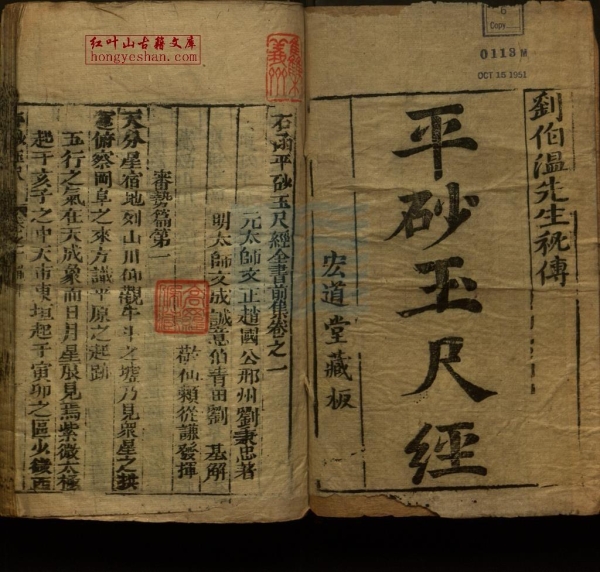 红叶山古籍文库
hongyeshan.com
6
Copy
0113
OCT 15 1951
劉伯溫先生秘傳
平砂玉尺經
宏道堂藏板
石函平砂玉尺經全書前集卷之一
元太師文正趙國公邢州劉秉忠著
明太師文成誠意伯青田劉基解
仙賴從謙發揮
審勢篇第一
天分星宿地列山川仰觀牛斗之墟乃見衆星之拱
俯察岡阜之來方識平原之起跡
五行之氣在天成象而日月星辰見焉紫微太極
起于亥子之中天市東垣起于寅卯之區少微西